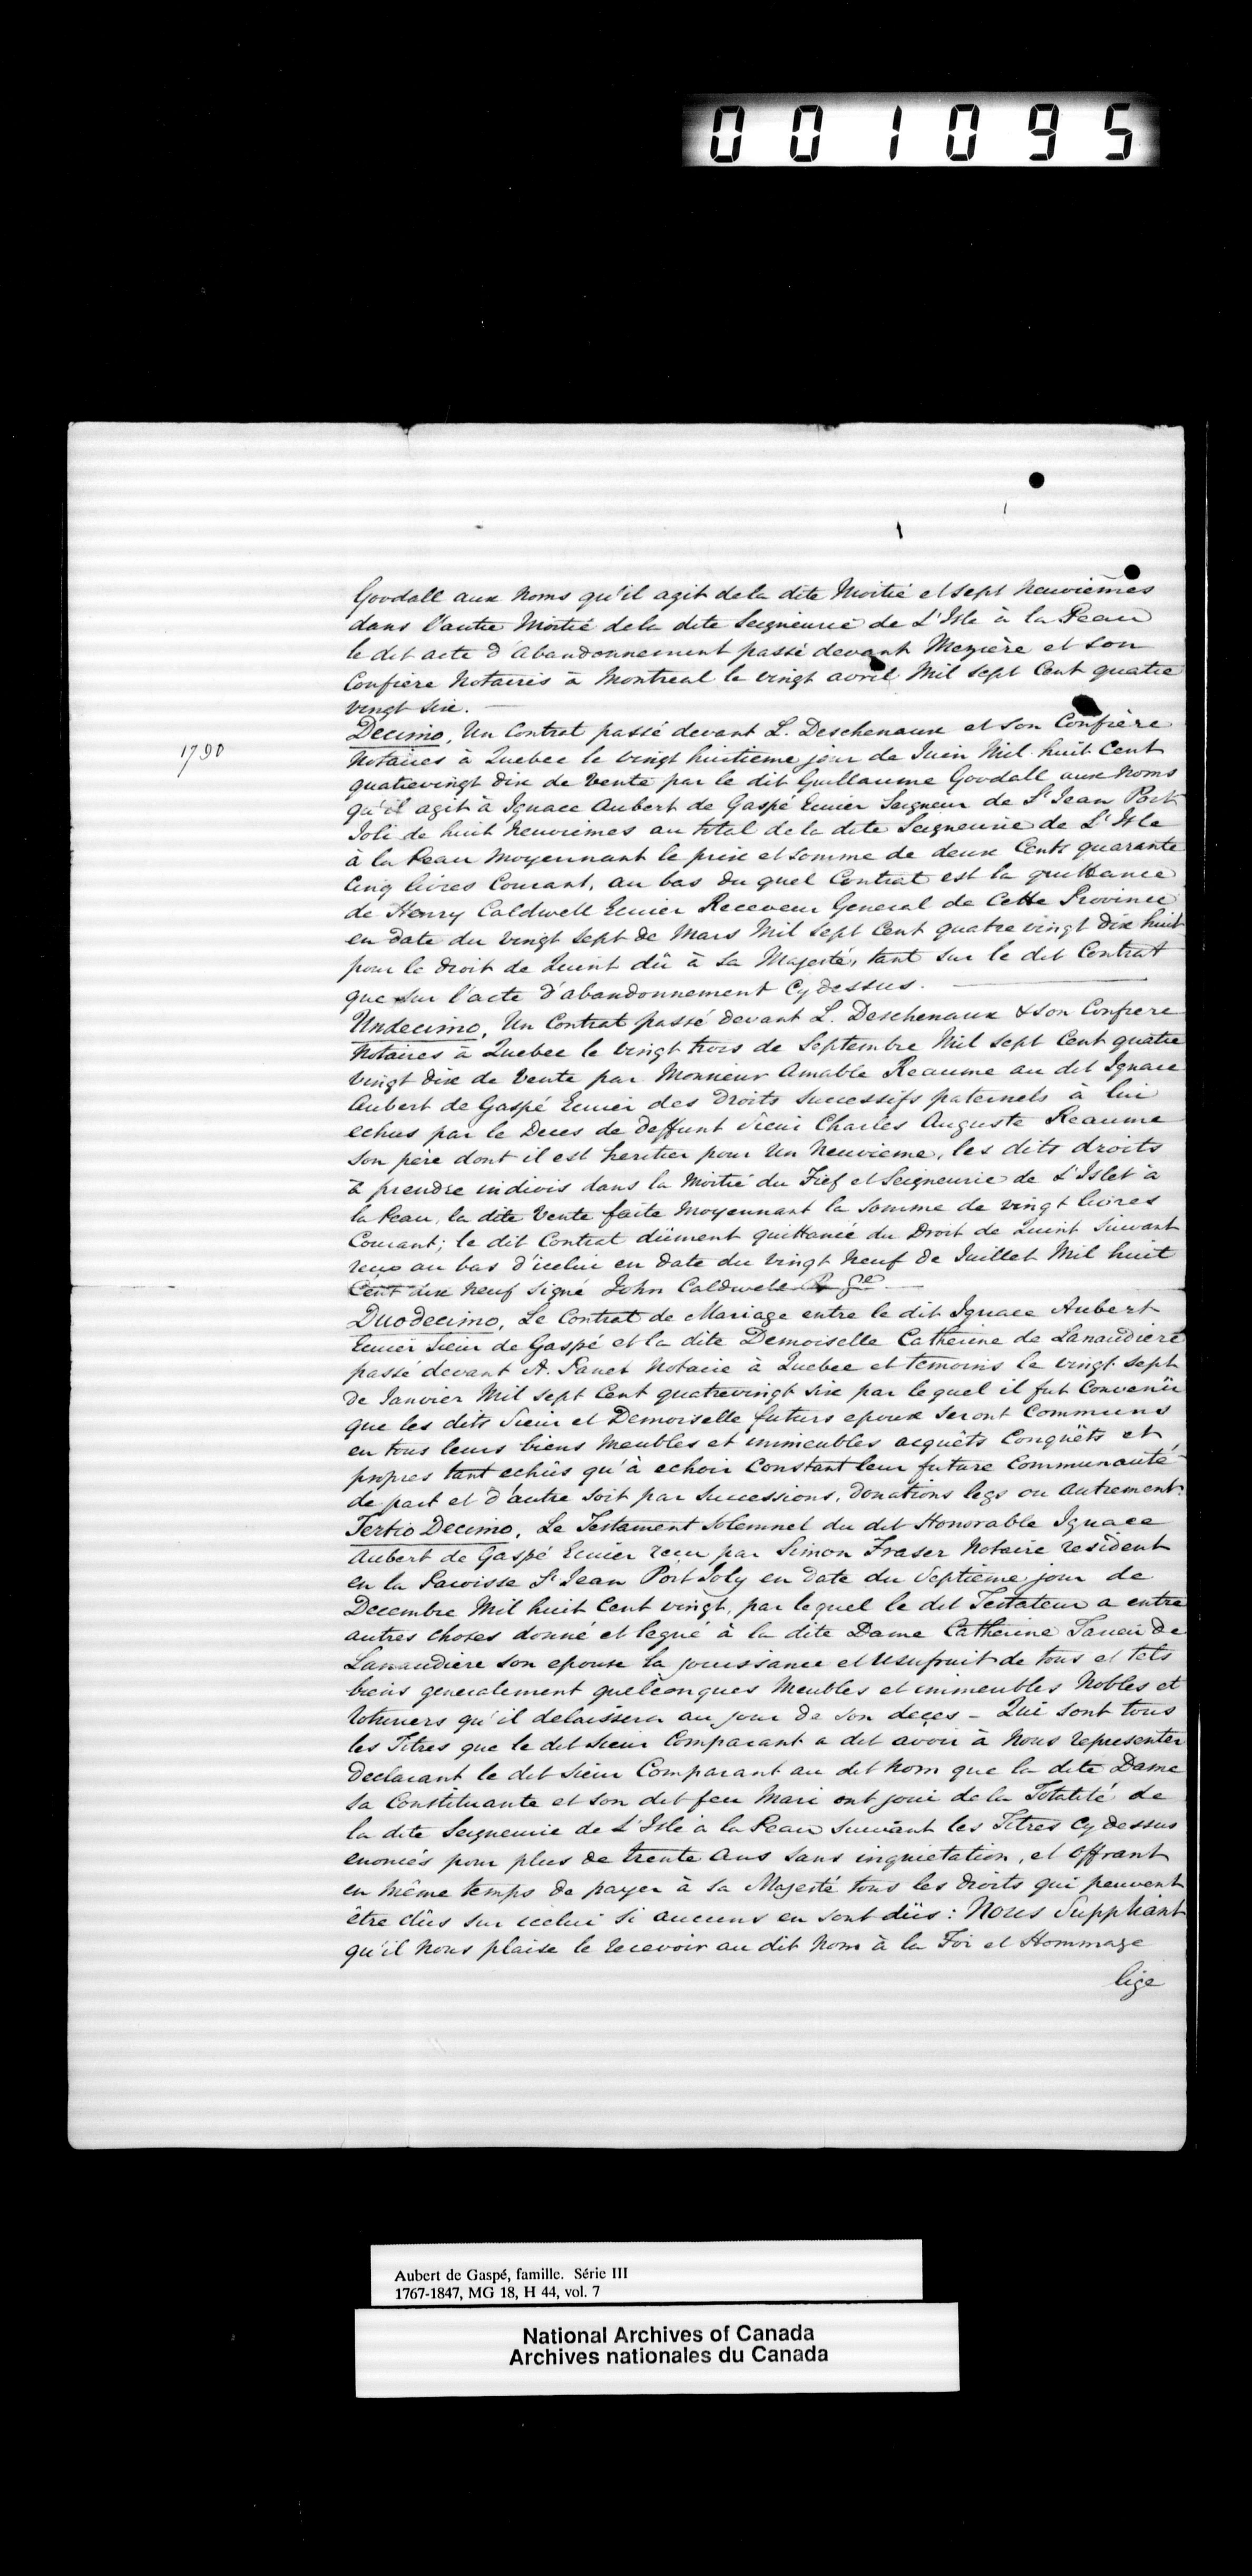 001095
Goodall aux Noms qu'il agit dela dite Moitié et sept Neuviemes
dans l'autre Moitié dela dite Seigneurie de L'Isle à la Peau
le dit acte d'abandonnement passé devant Mezière et son
Confrere Notaires à Montreal le vingt avril Mil sept Cent quatre
vingt six. —
Decimo, Un Contrat passé devant L. Deschenaux et Son Confrère
1790
Notaires à Quebec le vingt huitieme jour de Juin Mil huit Cent
quatrevingt dix de Vente par le dit Guillaume Goodall aux Noms
qu'il agit à Ignace Aubert de Gaspé Ecuier Seigneur de St Jean Port
Joli de huit Neuviemes au total dela dite Seigneurie de L'Isle
à la Peau Moyennant le prix et somme de deux Cents quarante
Cinq livres Courant, au bas du quel Contrat est la quittance
de Henry Caldwell Ecuier Receveur General de Cette Province
en date du vingt sept de Mars Mil sept Cent quatre vingt dix huit
pour le droit de Quint dû à Sa Majesté, tant sur le dit Contrat
que sur l'acte d'abandonnement Cy dessus. —
Undecimo, Un Contrat passé devant L. Deschenaux & son Confrere
Notaires à Quebec le vingt trois de Septembre Mil sept Cent quatre
vingt dix de Vente par Monsieur Amable Reaume au dit Ignace
Aubert de Gaspé Ecuier des droits Successifs paternels à lui
echus par le Deces de deffunt Sieur Charles Auguste Reaume
Son père dont il est heritier pour Un Neuvieme, les dits droits
à prendre indivis dans la Moitié du Fief et Seigneurie de L'Islet à
la Peau, la dite Vente faite Moyennant la Somme de vingt livres
Courant; le dit Contrat düement quittancé du Droit de Quint Suivant
reçu au bas d'icelui en date du vingt Neuf de Juillet Mil huit
Cent dix Neuf Signé John Caldwell R Gl —
Duodecimo, Le Contrat de Mariage entre le dit Ignace Aubert
Ecuier Sieur de Gaspé et la dite Demoiselle Catherine de Lanaudiere
passé devant A. Panet Notaire à Quebec et temoins le vingt sept
de Janvier Mil sept Cent quatrevingt six par lequel il fut Convenü
que les dits Sieur et Demoiselle futurs epoux seront Communs
en tous leurs biens Meubles et immeubles acquêts Conquêts et
propres tant echûs qu'à echoir Constant leur future Communauté
de part et d'autre Soit par Successions, donations legs ou autrement.
Tertio Decimo, Le Testament Solemnel du dit Honorable Ignace
Aubert de Gaspé Ecuier reçu par Simon Fraser Notaire resident
en la Paroisse St Jean Port Joly en date du Septieme jour de
Decembre Mil huit Cent vingt, par lequel le dit Testateur a entre
autres choses donné et legué à la dite Dame Catherine Taneir De
Lanaudiere son epouse la jouissance et Usufruit de tous et tels
biens generalement quelconques Meubles et immeubles Nobles et
Roturiers qu'il delaissera au jour de Son deçes – Qui sont tous
les Titres que le dit Sieur Comparant a dit avoir à Nous representer
declarant le dit Sieur Comparant au dit Nom que la dite Dame
sa Constituante et son dit feu Mari ont joui de la Totalité de
la dite Seigneurie de L'Isle à la Peau suivant les Titres Cy dessus
enoncés pour plus de trente Ans Sans inquietation, et Offrant
en Même temps de payer à sa Majesté tous les droits qui peuvent
être dûs sur icelui Si aucuns en sont düs: Nous Suppliant
qu'il Nous plaise le recevoir au dit Nom à la Foi et Hommage
lige
Aubert de Gaspé, famille. Série III
1767-1847, MG 18, H 44, vol. 7
National Archives of Canada
Archives nationales du Canada